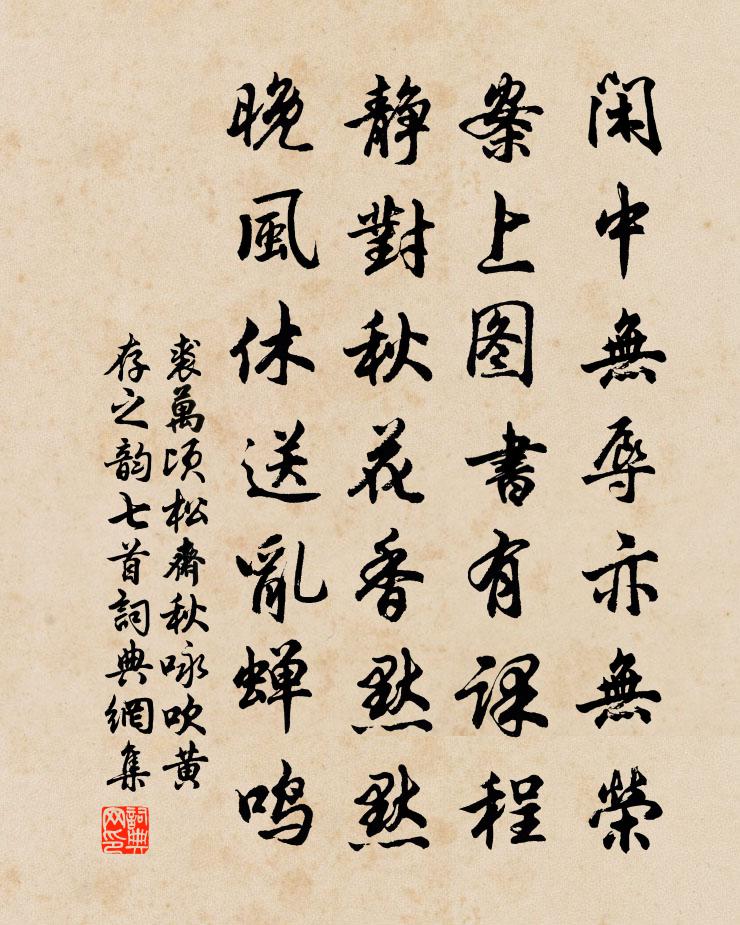 闲中無辱亦無榮
案上图書有課程
靜對秋花香黙黙
晚風休送亂蝉鸣
裘萬顷松齋秋咏吹黄
存之韵七首詞典網集
詞典网印